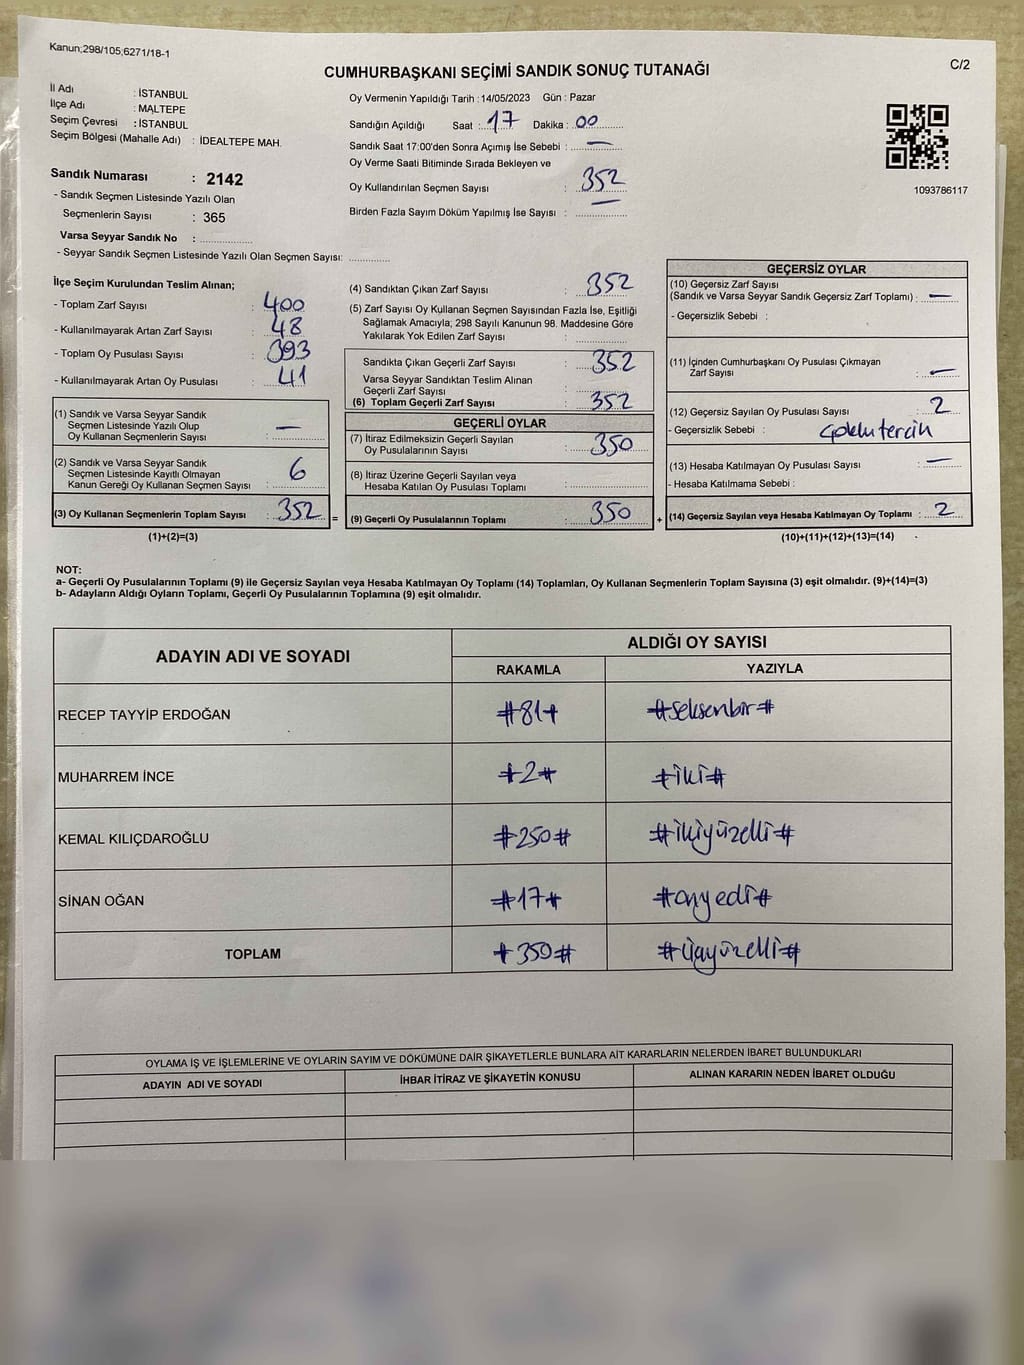 Kanun;298/105;6271/18-1
C/2
CUMHURBAŞKANI SEÇİMİ SANDIK SONUÇ TUTANAĞI
İl Adı : İSTANBUL
İlçe Adı : MALTEPE
Seçim Çevresi : İSTANBUL
Seçim Bölgesi (Mahalle Adı) : İDEALTEPE MAH.
Sandık Numarası : 2142
- Sandık Seçmen Listesinde Yazılı Olan
Seçmenlerin Sayısı : 365
Varsa Seyyar Sandık No :
- Seyyar Sandık Seçmen Listesinde Yazılı Olan Seçmen Sayısı:
Oy Vermenin Yapıldığı Tarih : 14/05/2023 Gün : Pazar
Sandığın Açıldığı Saat : 17 Dakika : 00
Sandık Saat 17:00'den Sonra Açımış İse Sebebi : —
Oy Verme Saati Bitiminde Sırada Bekleyen ve
Oy Kullandırılan Seçmen Sayısı : 352
Birden Fazla Sayım Döküm Yapılmış İse Sayısı : —
1093786117
İlçe Seçim Kurulundan Teslim Alınan;
- Toplam Zarf Sayısı : 400
- Kullanılmayarak Artan Zarf Sayısı : 48
- Toplam Oy Pusulası Sayısı : 393
- Kullanılmayarak Artan Oy Pusulası : 41
(1) Sandık ve Varsa Seyyar Sandık
Seçmen Listesinde Yazılı Olup
Oy Kullanan Seçmenlerin Sayısı : —
(2) Sandık ve Varsa Seyyar Sandık
Seçmen Listesinde Kayıtlı Olmayan
Kanun Gereği Oy Kullanan Seçmen Sayısı : 6
(3) Oy Kullanan Seçmenlerin Toplam Sayısı : 352 =
(1)+(2)=(3)
(4) Sandıktan Çıkan Zarf Sayısı : 352
(5) Zarf Sayısı Oy Kullanan Seçmen Sayısından Fazla İse, Eşitliği
Sağlamak Amacıyla; 298 Sayılı Kanunun 98. Maddesine Göre
Yakılarak Yok Edilen Zarf Sayısı :
Sandıkta Çıkan Geçerli Zarf Sayısı : 352
Varsa Seyyar Sandıktan Teslim Alınan
Geçerli Zarf Sayısı :
(6) Toplam Geçerli Zarf Sayısı : 352
GEÇERLİ OYLAR
(7) İtiraz Edilmeksizin Geçerli Sayılan
Oy Pusulalarının Sayısı : 350
(8) İtiraz Üzerine Geçerli Sayılan veya
Hesaba Katılan Oy Pusulası Toplamı :
(9) Geçerli Oy Pusulalarının Toplamı : 350 +
GEÇERSİZ OYLAR
(10) Geçersiz Zarf Sayısı
(Sandık ve Varsa Seyyar Sandık Geçersiz Zarf Toplamı) : —
- Geçersizlik Sebebi :
(11) İçinden Cumhurbaşkanı Oy Pusulası Çıkmayan
Zarf Sayısı : —
(12) Geçersiz Sayılan Oy Pusulası Sayısı : 2
- Geçersizlik Sebebi : çoklu tercih
(13) Hesaba Katılmayan Oy Pusulası Sayısı : —
- Hesaba Katılmama Sebebi :
(14) Geçersiz Sayılan veya Hesaba Katılmayan Oy Toplamı : 2
(10)+(11)+(12)+(13)=(14)
NOT:
a- Geçerli Oy Pusulalarının Toplamı (9) ile Geçersiz Sayılan veya Hesaba Katılmayan Oy Toplamı (14) Toplamları, Oy Kullanan Seçmenlerin Toplam Sayısına (3) eşit olmalıdır. (9)+(14)=(3)
b- Adayların Aldığı Oyların Toplamı, Geçerli Oy Pusulalarının Toplamına (9) eşit olmalıdır.
ADAYIN ADI VE SOYADI
ALDIĞI OY SAYISI
RAKAMLA YAZIYLA
RECEP TAYYİP ERDOĞAN #81# #seksenbir#
MUHARREM İNCE #2# #iki#
KEMAL KILIÇDAROĞLU #250# #ikiyüzelli#
SİNAN OĞAN #17# #onyedi#
TOPLAM #350# #üçyüzelli#
OYLAMA İŞ VE İŞLEMLERİNE VE OYLARIN SAYIM VE DÖKÜMÜNE DAİR ŞİKAYETLERLE BUNLARA AİT KARARLARIN NELERDEN İBARET BULUNDUKLARI
ADAYIN ADI VE SOYADI İHBAR İTİRAZ VE ŞİKAYETİN KONUSU ALINAN KARARIN NEDEN İBARET OLDUĞU